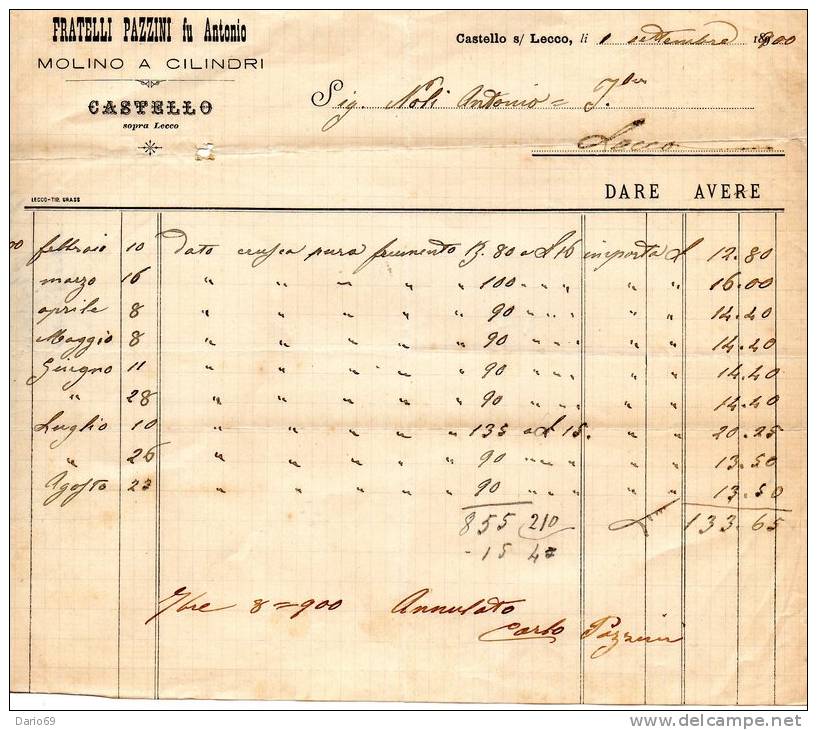 FRATELLI PAZZINI fu Antonio
MOLINO A CILINDRI
CASTELLO
sopra Lecco
Castello s/ Lecco, li 1 settembre 1900
Sig. Noli Antonio =
Lecco
LECCO-TIP. GRASS
DARE AVERE
febbraio 10 dato crusca pura frumento K. 80 a £ 16 importa £ 12.80
marzo 16 " " " " " 100 " " " " " 16.00
aprile 8 " " " " " 90 " " " " " 14.40
Maggio 8 " " " " " 90 " " " " " 14.40
Giugno 11 " " " " " 90 " " " " " 14.40
" 28 " " " " " 90 " " " " " 14.40
Luglio 10 " " " " " 135 a £ 15. " " 20.25
" 26 " " " " " 90 " " " " " 13.50
Agosto 23 " " " " " 90 " " " " " 13.50
855 210 £ 133.65
- 15 47
7/bre 8 = 900 Annulato
Carlo Pazzini
Dario69
www.delcampe.net